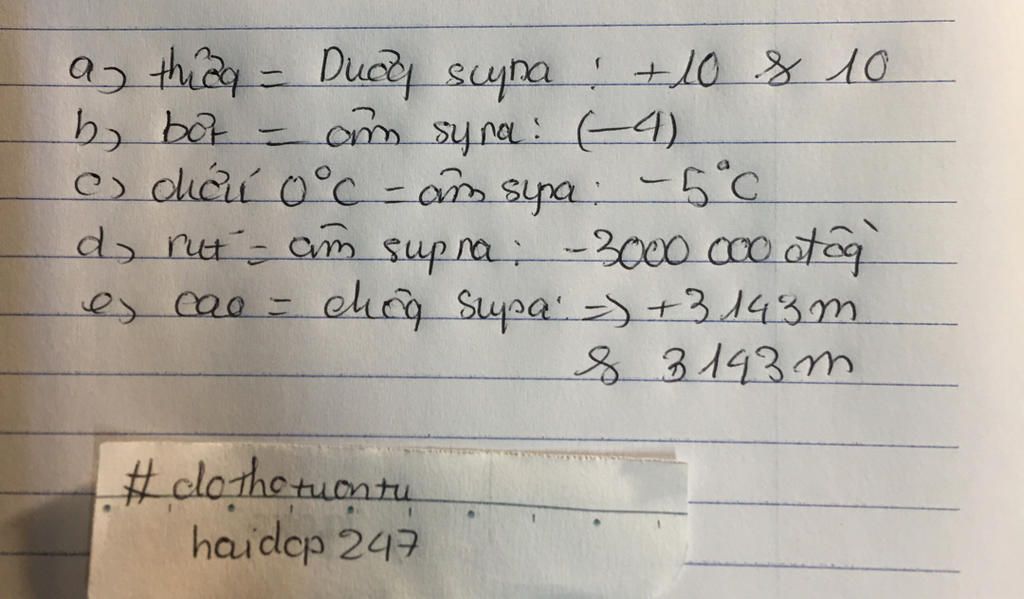 a) thưởg = Duơg supra : +10 & 10
b) bớt = âm supra: (-4)
c) dưới 0°C = âm supa: -5°C
d) rut = âm supra: -3000 000 đồg
e) cao = dươg supa: => +3 143m
& 3 143m
#dothotuontu
haidcp 247